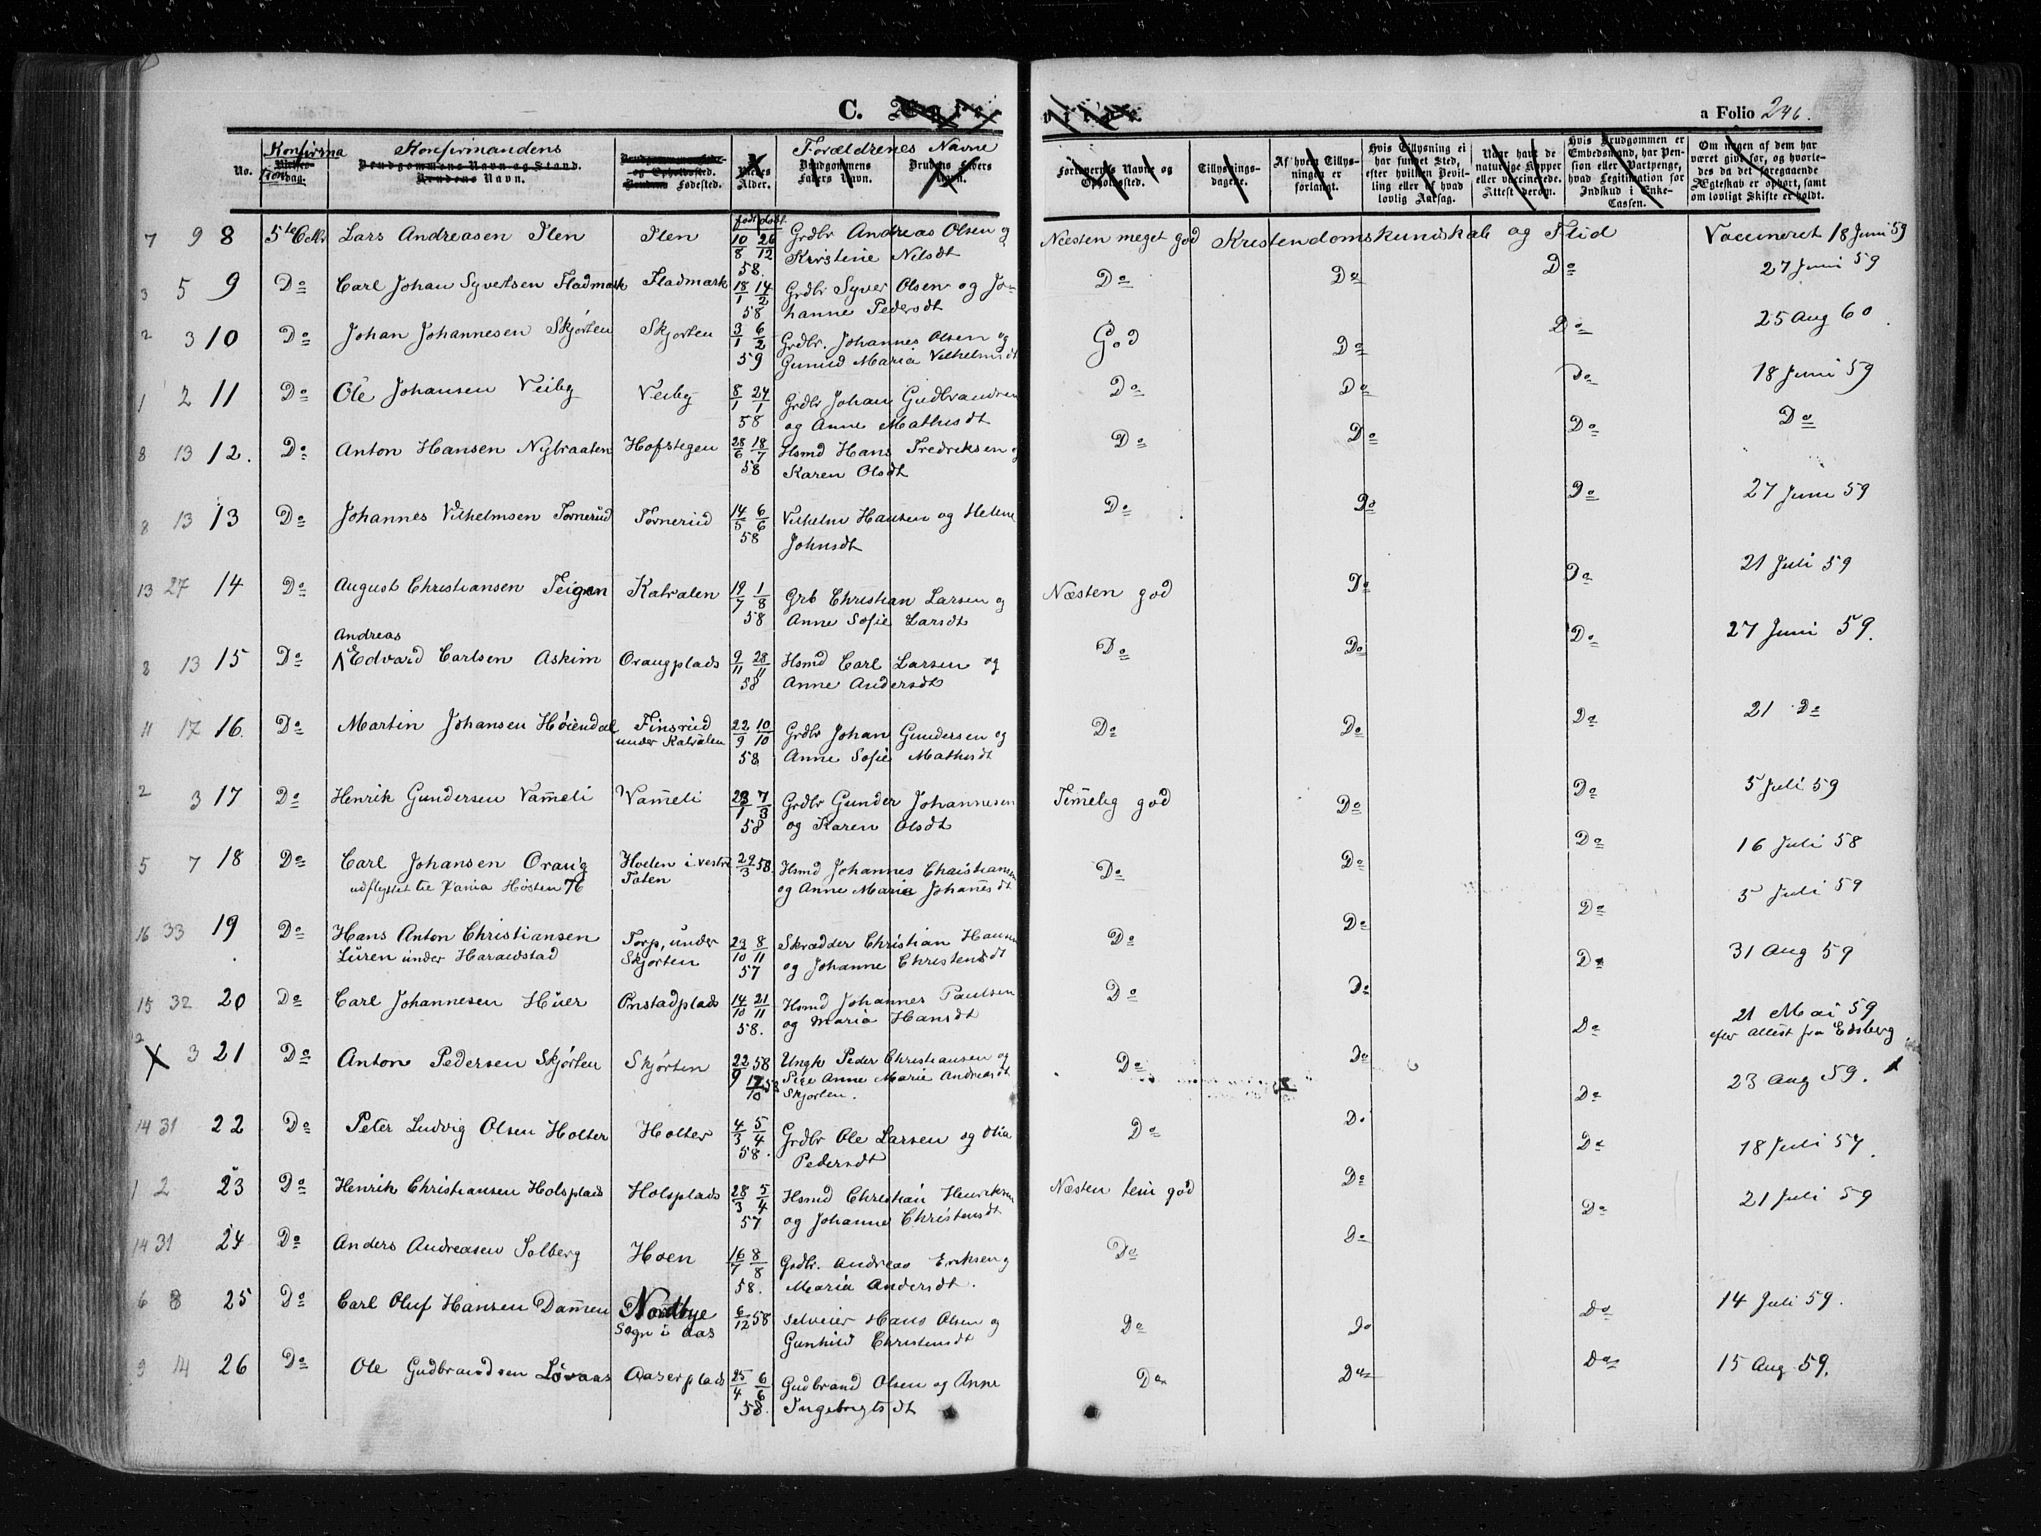 C. Ægte-
viede.
a Folio 246.
No.
Konfirma
tion
Vielses-
dag.
Konfirmandens
Brudgommens Navn og Stand.
Brudens Navn.
og Opholdssted.
Brudens Fødested.
Vieres
Alder.
Forældrenes Navne
Brudgommens Faders Navn.
Brudens Faders Navn.
Forloverens Navne og Opholdssted.
Tillysnings-
dagene.
Af hvem Tillys-
ningen er
forlangt.
Hvis Tillysning ei
har funget Sted,
efter hvilken Bevil-
ling eller af hvad
lovlig Aarsag.
Naar havt de
naturlige Kopper
eller vaccinerede.
Attest derom.
Hvis Brudgommen er
Embedsmand, har Pen-
sion eller Partpenge,
hvad Legitimation for
Indskud i Enke-
Cassen.
Om nogen af dem har
været gift før, og hvorle-
des da det foregaaende
Ægteskab er ophørt, samt
om lovligt Skifte er holdt.
født døbt
7 9 8 5te Octbr Lars Andreasen Ilen Ilen 10/8 26/12 58. Grdbr Andreas Olsen og Kirstine Nilsdt Næsten meget god Kristendomskundskab og Flid Vaccineret 18 Juni 59
3 5 9 Do Carl Johan Syvertsen Fladmark Fladmark 18/1 14/2 58 Grdbr Syver Olsen og Johanne Pedersdt Do Do Do 27 Juni 59
2 3 10 Do Johan Johannesen Skjørten Skjorten 3/1 6/2 59 Grdbr. Johannes Olsen og Gunild Maria Vilhelmsdt God Do Do 25 Aug 60
1 2 11 Do Ole Johansen Veiby Veiby 8/1 24/1 58 Grdbr Johan Gudbrandsen og Anne Mathisdt Do Do Do 18 Juni 59
8 13 12. Do Anton Hansen Nybraaten Hofstegen 28/6 18/7 58 Hsmd Hans Fredriksen og Karen Olsdt Do Do Do Do
8 13 13 Do Johannes Vilhelmsen Tornerud Tornerud 14/5 6/6 58 Vilhelm Hansen og Helene Johnsdt Do Do Do 27 Juni 59
13 27 14 Do August Christiansen Teigen Katralen 19/7 1/8 58 Grb Christian Larsen og Anne Sofie Larsdt Næsten god Do Do 21 Juli 59
Andreas
8 13 15 Do Edvard Carlsen Askim Oraugplads 9/11 28/11 58 Hsmd Carl Larsen og Anne Andersdt Do Do Do 27 Juni 59.
11 17 16. Do Martin Johansen Høiendal Finsrud under Katralen 22/9 10/10 58 Grdbr Johan Gundersen og Anne Sofie Mathisdt Do Do Do 21 Do
2 3 17 Do Henrik Gundersen Vam̄eli Vam̄eli 23/1 7/3 58 Grdbr Gunder Johannesen og Karen Olsdt Tem̄elig god Do Do 5 Juli 59
5 7 18 Do Carl Johansen Oraug Hveten i vestre Toten 29/3 58. Hsmd Johannes Christiansen og Anne Marie Johan̄esdt Do Do Do 16 Juli 58
udflyttet til Xania Høsten 76
5 Juli 59
16 33 19 Do Hans Anton Christiansen Luren under Haraldstad Torp, under Skjørten 23/10 8/11 57 Skrædder Christian Hansen og Johanne Christensdt Do Do Do 31 Aug 59
15 32 20 Do Carl Johannesen Huer Onstadplads 14/10 21/11 58. Hsmd Johannes Paulsen og Maria Hansdt Do Do Do 21 Mai 59 efter Attest fra Edsberg
2 X 3 21 Do Anton Pedersen Skjørten Skjørten 22/9 58 Ungk Peder Christiansen og Pige Anne Marie Andreasdt Skjorten. Do Do Do 23 Aug 59.
14 31 22 Do Peter Ludvig Olsen Holter Holter 4/3 5/4 58. Grdbr Ole Larsen og Olia Pedersdt Do Do Do 18 Juli 57
1 2 23 Do Henrik Christiansen Holsplads Holsplads 28/3 5/4 57 Hsmd Christian Henriksen og Johanne Christensdt Næsten tem god Do Do 21 Juli 59
14 31 24 Do Anders Andreasen Solberg Hoen 16/7 8/8 58. Grdbr. Andreas Eriksen og Maria Andersdt. Do Do
6 8 25 Do Carl Oluf Hansen Dam̄en Nordbye Sogn i Aas 6/12 58 Selveier Hans Olsen og Gunhild Christensdt Do Do Do 14 Juli 59.
9 14 26 Do Ole Gudbrandsen Løvaas Aaserplads 25/4 6/6 58. Gudbrand Olsen og Anne Ingebrigtsdt Do Do Do 15 Aug 59.